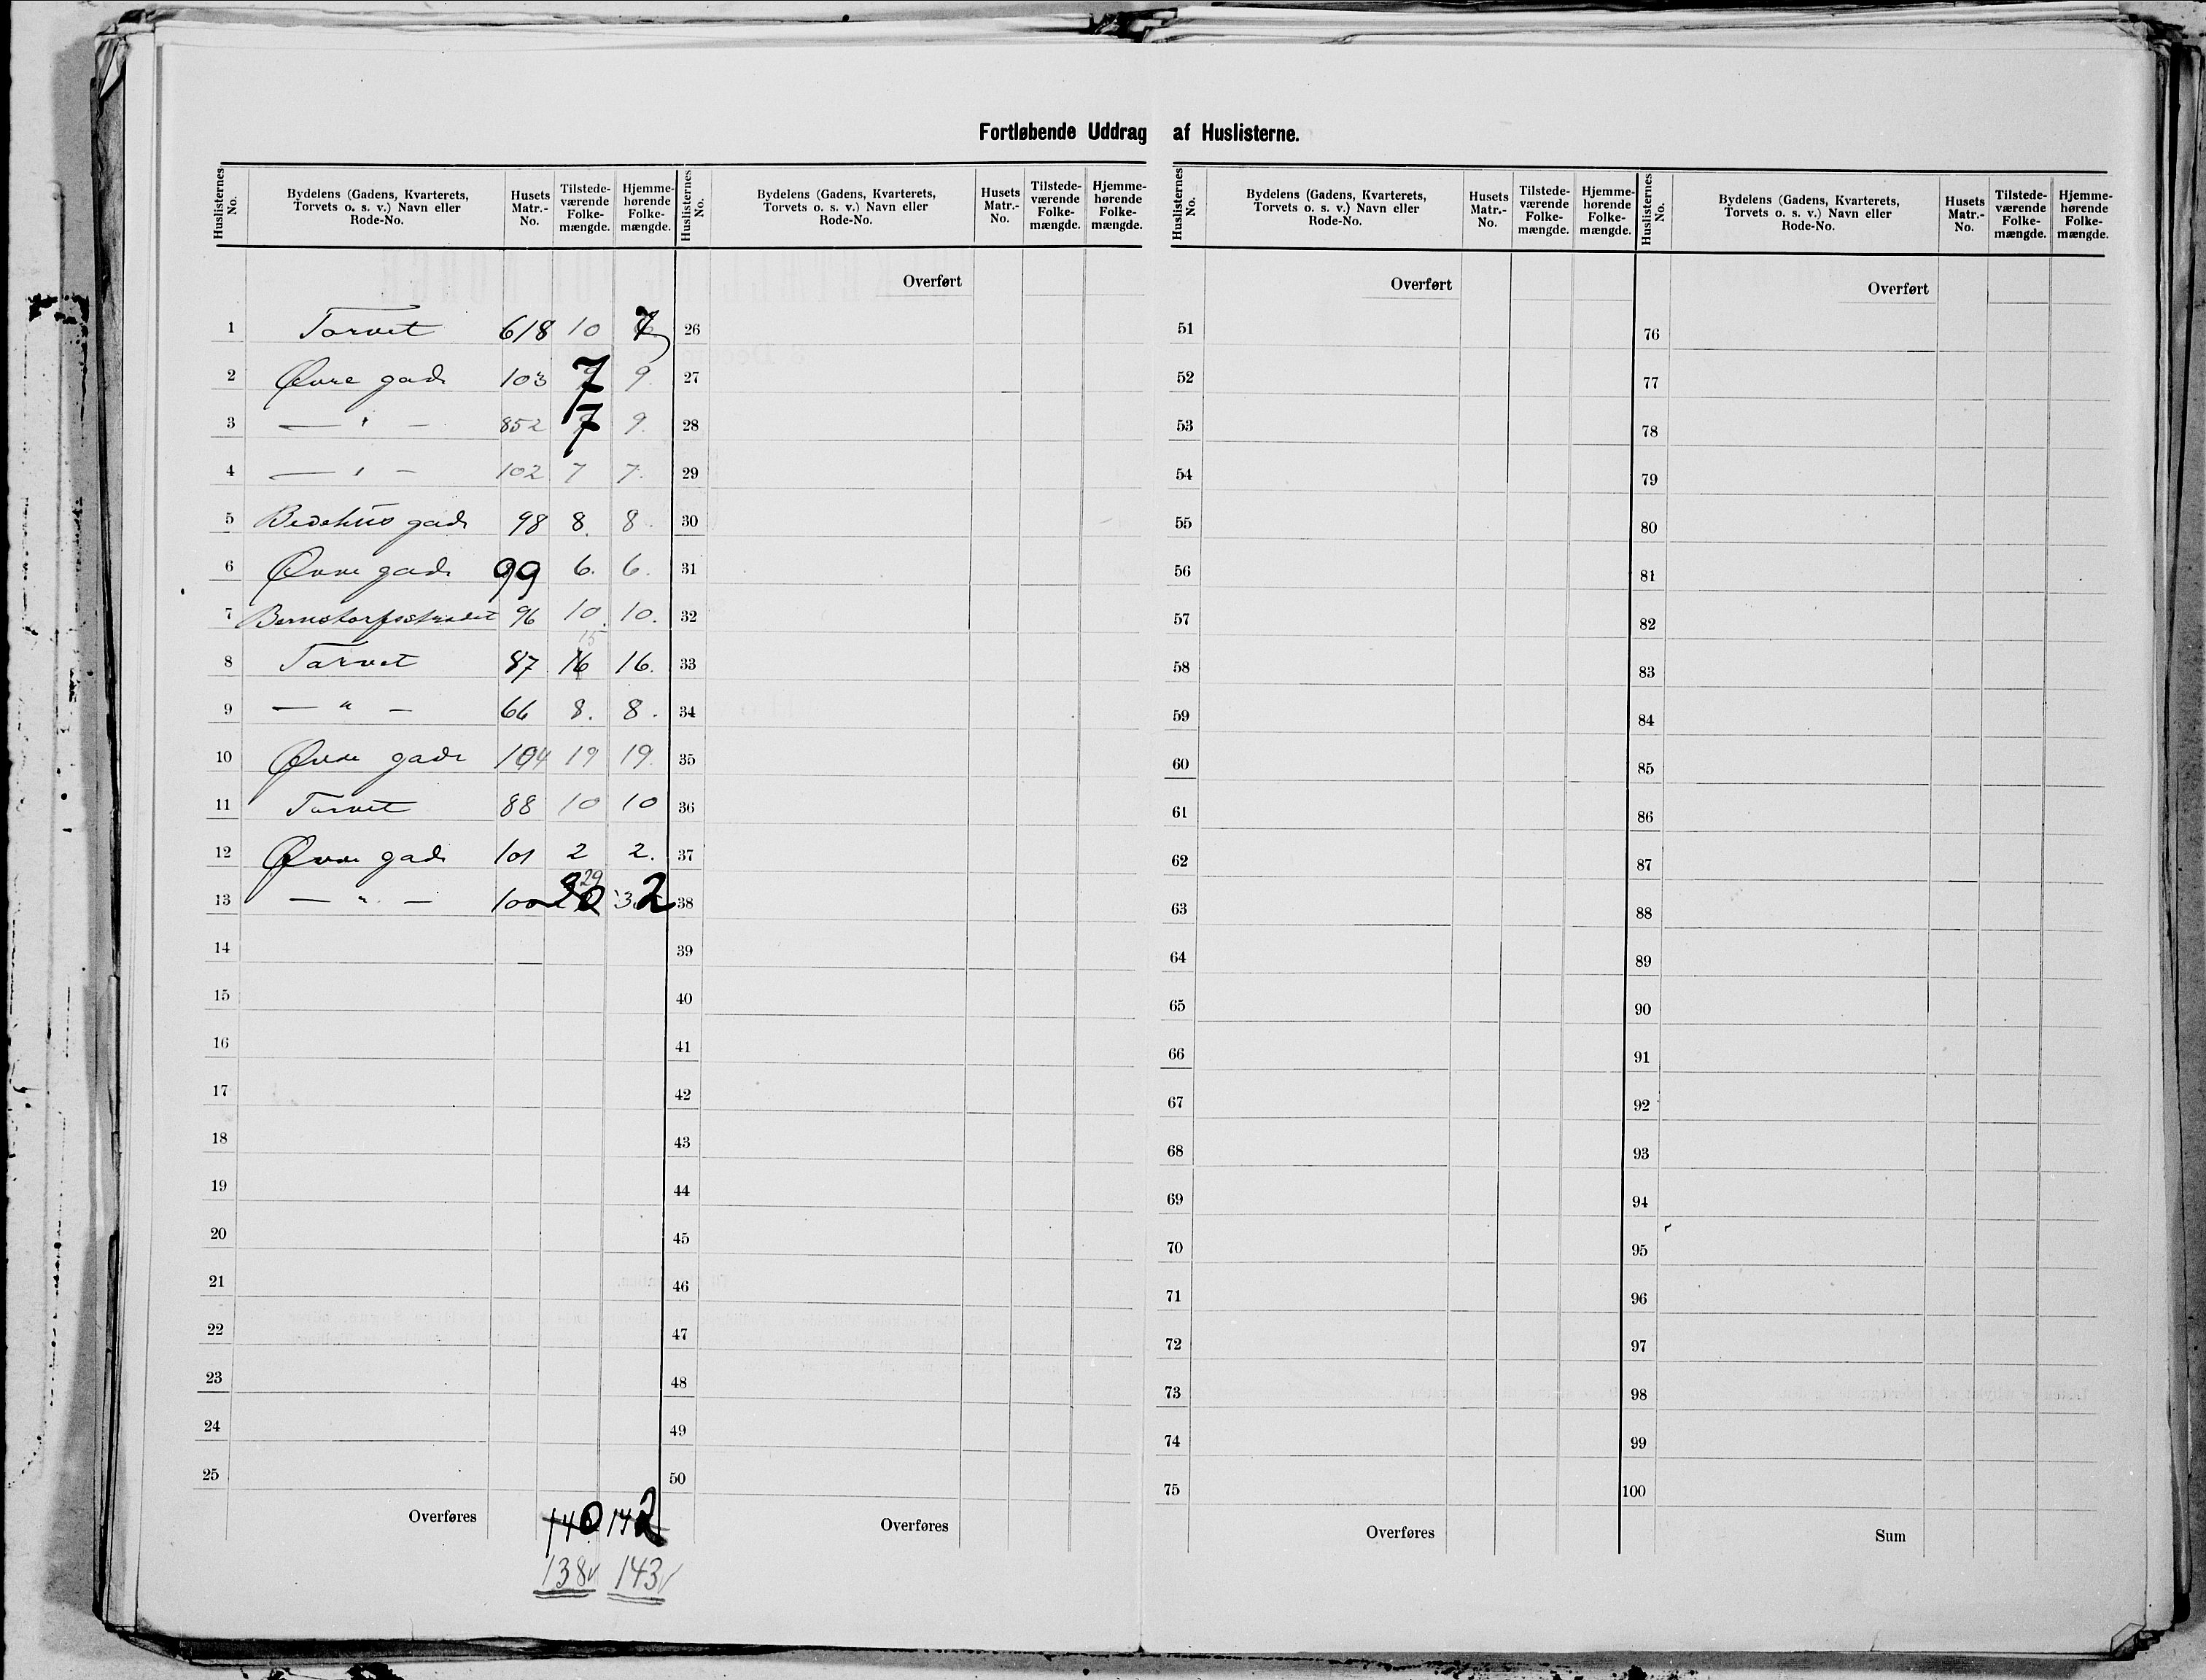 Fortløbende Uddrag af Huslisterne.
Huslisternes No. | Bydelens (Gadens, Kvarterets, Torvets o. s. v.) Navn eller Rode-No. | Husets Matr.-No. | Tilstedeværende Folkemængde. | Hjemmehørende Folkemængde.
Huslisternes No. | Bydelens (Gadens, Kvarterets, Torvets o. s. v.) Navn eller Rode-No. | Husets Matr.-No. | Tilstedeværende Folkemængde. | Hjemmehørende Folkemængde.
Huslisternes No. | Bydelens (Gadens, Kvarterets, Torvets o. s. v.) Navn eller Rode-No. | Husets Matr.-No. | Tilstedeværende Folkemængde. | Hjemmehørende Folkemængde.
Huslisternes No. | Bydelens (Gadens, Kvarterets, Torvets o. s. v.) Navn eller Rode-No. | Husets Matr.-No. | Tilstedeværende Folkemængde. | Hjemmehørende Folkemængde.
Overført Overført Overført
1 Torvet 618 10 7 26 51 76
2 Øvre gade 103 7 9. 27 52 77
3 — " — 852 7 9. 28 53 78
4 — " — 102 7 7. 29 54 79
5 Bedehus gade 98 8. 8. 30 55 80
6 Øvre gade 99 6. 6. 31 56 81
7 Bernstorfsstrædet 96 10. 10. 32 57 82
15
8 Torvet 87 16 16. 33 58 83
9 — " — 66 8. 8. 34 59 84
10 Øvre gade 104 19 19. 35 60 85
11 Torvet 88 10 10 36 61 86
12 Øvre gade 101 2 2. 37 62 87
29
13 — " — 100 30 32 38 63 88
14 39 64 89
15 40 65 90
16 41 66 91
17 42 67 92
18 43 68 93
19 44 69 94
20 45 70 95
21 46 71 96
22 47 72 97
23 48 73 98
24 49 74 99
25 50 75 100
Overføres 140 142 Overføres Overføres Sum
138 143